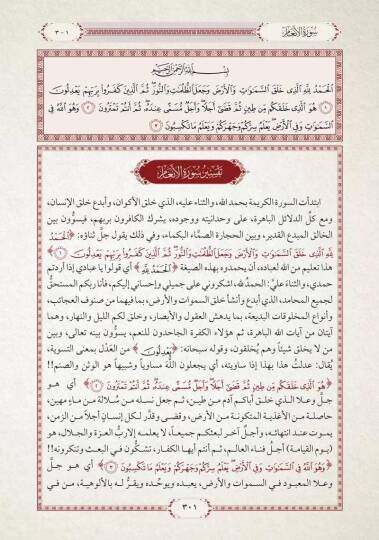 ٣٠١ سورة الأنعام
بسم الله الرحمن الرحيم
الْحَمْدُ لِلَّهِ الَّذِي خَلَقَ السَّمَوَاتِ وَالْأَرْضَ وَجَعَلَ الظُّلُمَاتِ وَالنُّورَ ثُمَّ الَّذِينَ كَفَرُوا بِرَبِّهِمْ يَعْدِلُونَ
﴿١﴾ هُوَ الَّذِي خَلَقَكُم مِّن طِينٍ ثُمَّ قَضَى أَجَلًا وَأَجَلٌ مُّسَمًّى عِندَهُ ثُمَّ أَنتُمْ تَمْتَرُونَ ﴿٢﴾ وَهُوَ اللَّهُ فِي
السَّمَوَاتِ وَفِي الْأَرْضِ يَعْلَمُ سِرَّكُمْ وَجَهْرَكُمْ وَيَعْلَمُ مَا تَكْسِبُونَ ﴿٣﴾
تفسير سورة الأنعام
ابتدأت السورة الكريمة بحمد الله، والثناء عليه، الذي خلق الأكوان، وأبدع خلق الإنسان،
ومع كلِّ الدلائل الباهرة، على وحدانيته ووجوده، يشرك الكافرون بربهم، فيسوُّون بين
الخالق المبدع القدير، وبين الحجارة الصمَّاء البكماء، وفي ذلك يقول جلَّ ثناؤه: ﴿الْحَمْدُ
لِلَّهِ الَّذِي خَلَقَ السَّمَوَاتِ وَالْأَرْضَ وَجَعَلَ الظُّلُمَاتِ وَالنُّورَ ثُمَّ الَّذِينَ كَفَرُوا بِرَبِّهِمْ يَعْدِلُونَ ﴿١﴾﴾
هذا تعليم من الله لعباده، أن يحمدوه بهذه الصيغة ﴿الْحَمْدُ لِلَّهِ﴾ أي قولوا يا عبادي إذا أردتم
حمدي، والثناء عليَّ: الحمدُ لله، اشكروني على جميلي وإحساني إليكم، فأنا ربكم المستحقُّ
لجميع المحامد، الذي أبدع وأنشأ خلق السموات والأرض، بما فيهما من صنوف العجائب،
وأنواع المخلوقات البديعة، بما يدهش العقول والأبصار، وخلق لكم الليل والنهار، وهما
آيتان من آيات الله الباهرة، ثم هؤلاء الكفرة الجاحدون للنعم، يسوُّون بينه تعالى، وبين
من لا يخلق شيئاً وهم يُخلقون، وقوله سبحانه: ﴿يَعْدِلُونَ﴾ من العَدْل بمعنى التسوية،
يُقال: عدلتُ هذا بهذا إذا ساويته، أي يجعلون اللَّهَ مساوياً وشبيهاً هو الوثن والصنم!!
﴿هُوَ الَّذِي خَلَقَكُم مِّن طِينٍ ثُمَّ قَضَى أَجَلًا وَأَجَلٌ مُّسَمًّى عِندَهُ ثُمَّ أَنتُمْ تَمْتَرُونَ ﴿٢﴾﴾ أي هو
جلَّ وعلا الذي خلق أباكم آدم من طين، ثم جعل نسله من سُلالة من ماءٍ مهين،
حاصلة من الأغذية المتكونة من الأرض، وقضى وقدَّر لكل إنسانٍ أجلاً من الزمن،
يموت عند انتهائه، وأجلٌ آخر لبعثكم جميعاً، لا يعلمه إلا ربُّ العزة والجلال، هو
(يوم القيامة) أجلُ فناء العالم، ثم أنتم أيها الكفار، تشكُّون في البعث وتنكرونه!!
﴿وَهُوَ اللَّهُ فِي السَّمَوَاتِ وَفِي الْأَرْضِ يَعْلَمُ سِرَّكُمْ وَجَهْرَكُمْ وَيَعْلَمُ مَا تَكْسِبُونَ ﴿٣﴾﴾ أي هو جلَّ
وعلا المعبود في السموات والأرض، يعبده ويوحِّده ويقرُّ له بالألوهية، من في
٣٠١